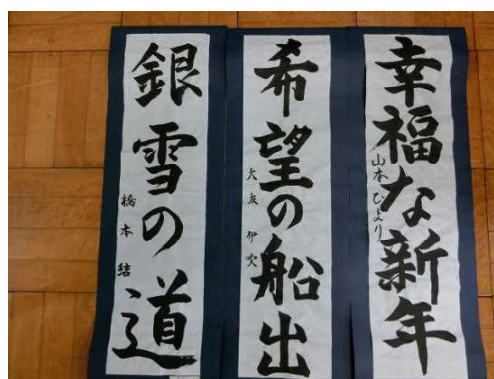 幸福な新年
山本ひより
希望の船出
大友伊吹
銀雪の道
橋本結